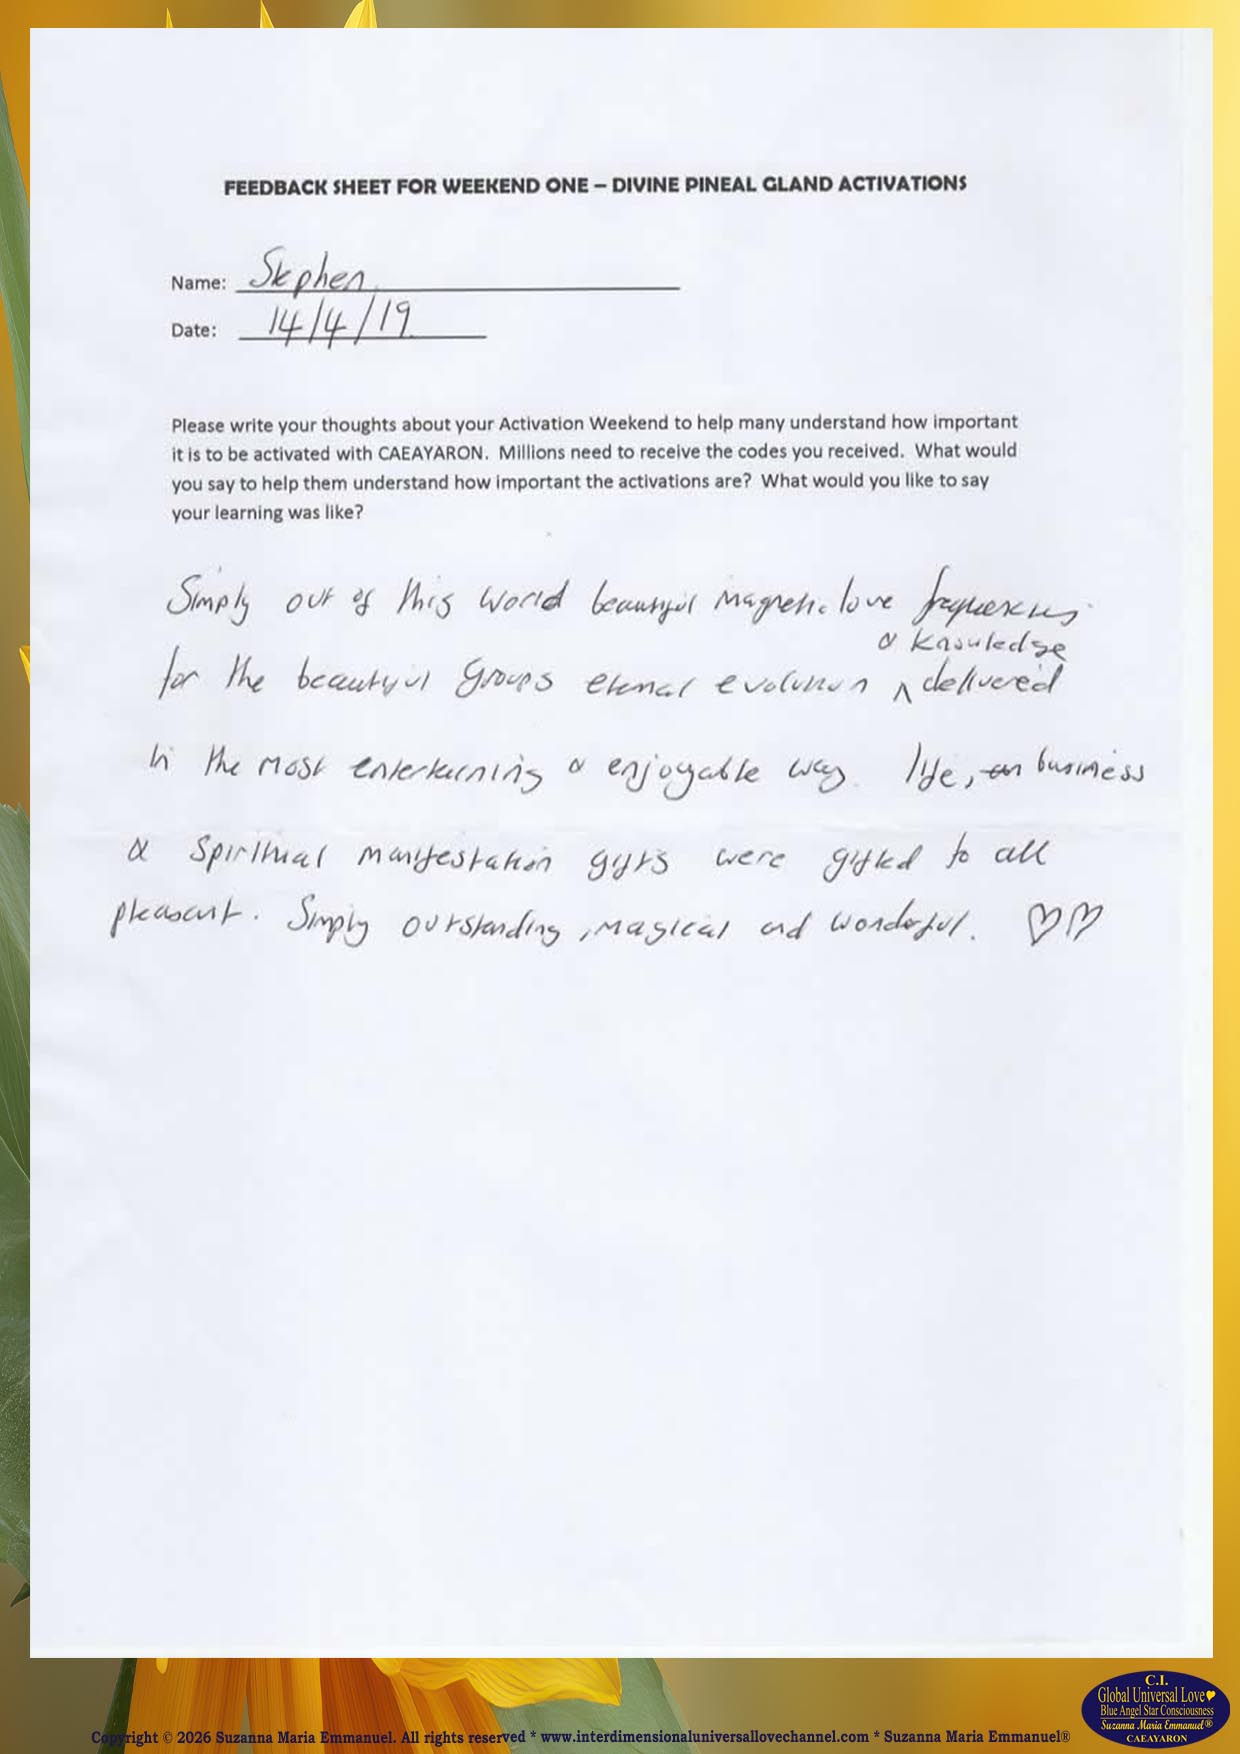 FEEDBACK SHEET FOR WEEKEND ONE – DIVINE PINEAL GLAND ACTIVATIONS
Name: Stephen
Date: 14/4/19
Please write your thoughts about your Activation Weekend to help many understand how important
it is to be activated with CAEAYARON. Millions need to receive the codes you received. What would
you say to help them understand how important the activations are? What would you like to say
your learning was like?
Simply out of this world beautiful magnetic love frequencies
& knowledge
for the beautiful groups eternal evolution ^ delivered
in the most entertaining & enjoyable way. life, business
& spiritual manifestation gifts were gifted to all
pleasant. Simply outstanding, magical and wonderful. ♡♡
C.I.
Global Universal Love♥
Blue Angel Star Consciousness
Suzanna Maria Emmanuel®
CAEAYARON
Copyright © 2026 Suzanna Maria Emmanuel. All rights reserved * www.interdimensionaluniversallovechannel.com * Suzanna Maria Emmanuel®